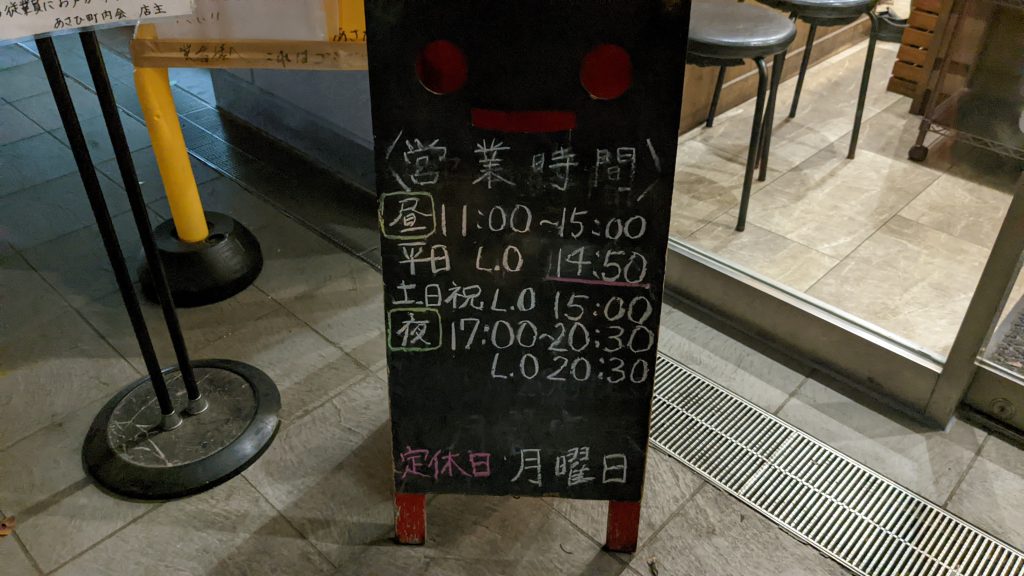 あさひ町内会 店主
営業時間
昼 11:00~15:00
平日 L.O 14:50
土日祝 L.O 15:00
夜 17:00~20:30
L.O 20:30
定休日 月曜日